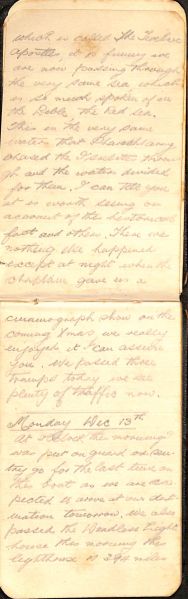 which is called The Twelve
Apostles, it is funny we
are now passing through
the very same sea which
is so much spoken of in
the Bible. the Red Sea.
This is the very same
water that
chased the Isrealites throu
gh and the water divided
for them. I can tell you
it is worth seeing on
account of the
fact and others. There were
nothing else happened
except at night when the
chaplain gave us a
cinemograph show on the
coming Xmas we really
enjoyed it I can assure
you. We passed three
troopships today we see
plenty of traffic now.
Monday Dec 13th
At 2 o'clock this morning I
was put on guard on sen
try go for the last time on
this boat as we are ex
pected to arrive at our dest
ination tomorrow. We also
passed the Light
house this morning this
lighthouse is miles